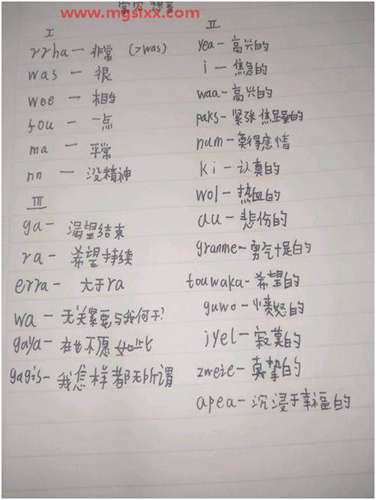 www.mgslxx.com
I
rrha — 非常 (>was)
was — 很
wee — 相当
fou — 一点
ma — 平常
nn — 没精神
III
ga — 渴望结束
ra — 希望持续
erra — 大于ra
wa — 无关紧要与我何干?
gaya — 在也不愿如此
gagis — 我怎样都无所谓
II
yea — 高兴的
i — 焦急的
waa — 高兴的
paks — 紧张焦虑的
num — 莫得感情
ki — 认真的
wol — 热血的
au — 悲伤的
granme — 勇气十足的
touwaka — 希望的
guwo — 愤怒的
jyel — 寂寞的
zweie — 真挚的
apea — 沉浸于幸福的